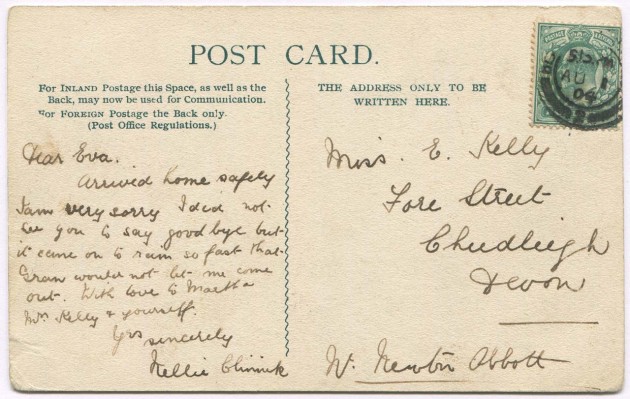 POST CARD.
For INLAND Postage this Space, as well as the
Back, may now be used for Communication.
For FOREIGN Postage the Back only.
(Post Office Regulations.)
THE ADDRESS ONLY TO BE
WRITTEN HERE.
Dear Eva.
Arrived home safely
I am very sorry I did not
see you to say goodbye but
it came on to rain so fast that
Gran would not let me come
out. With love to Martha
Mrs Kelly & yourself.
Yrs
sincerely
Nellie
Miss. E. Kelly
Fore Street
Chudleigh
Devon
Nr. Newton Abbott
AU 1
04